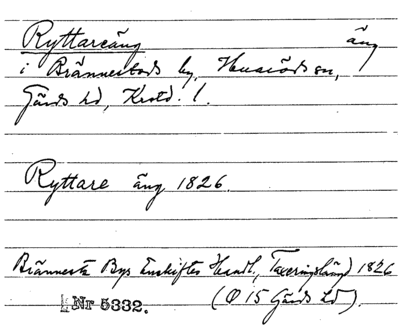 Ryttareäng äng
i Brännestads by, Huaröds sn,
Gärds hd, Krstd. l.
Ryttare äng 1826.
Brännesta Bys Enskiftes Handl., Taxeringslängd 1826
Nr 5332. (Ø 15 Gärds hd).